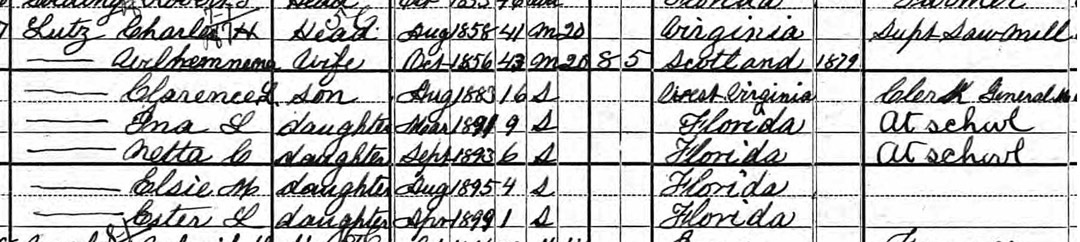 Florida Farmer
Lutz Charles H Head Aug 1858 41 M 20 Virginia Supt Saw Mill
Wife Oct 1856 43 M 20 8 5 Scotland 1879
Clarence L son Aug 1883 16 S West Virginia Clerk General
Ina L daughter Mar 1891 9 S Florida At school
Netta C daughter Sept 1893 6 S Florida At school
Elsie M daughter Aug 1895 4 S Florida
Ester L daughter Apr 1899 1 S Florida